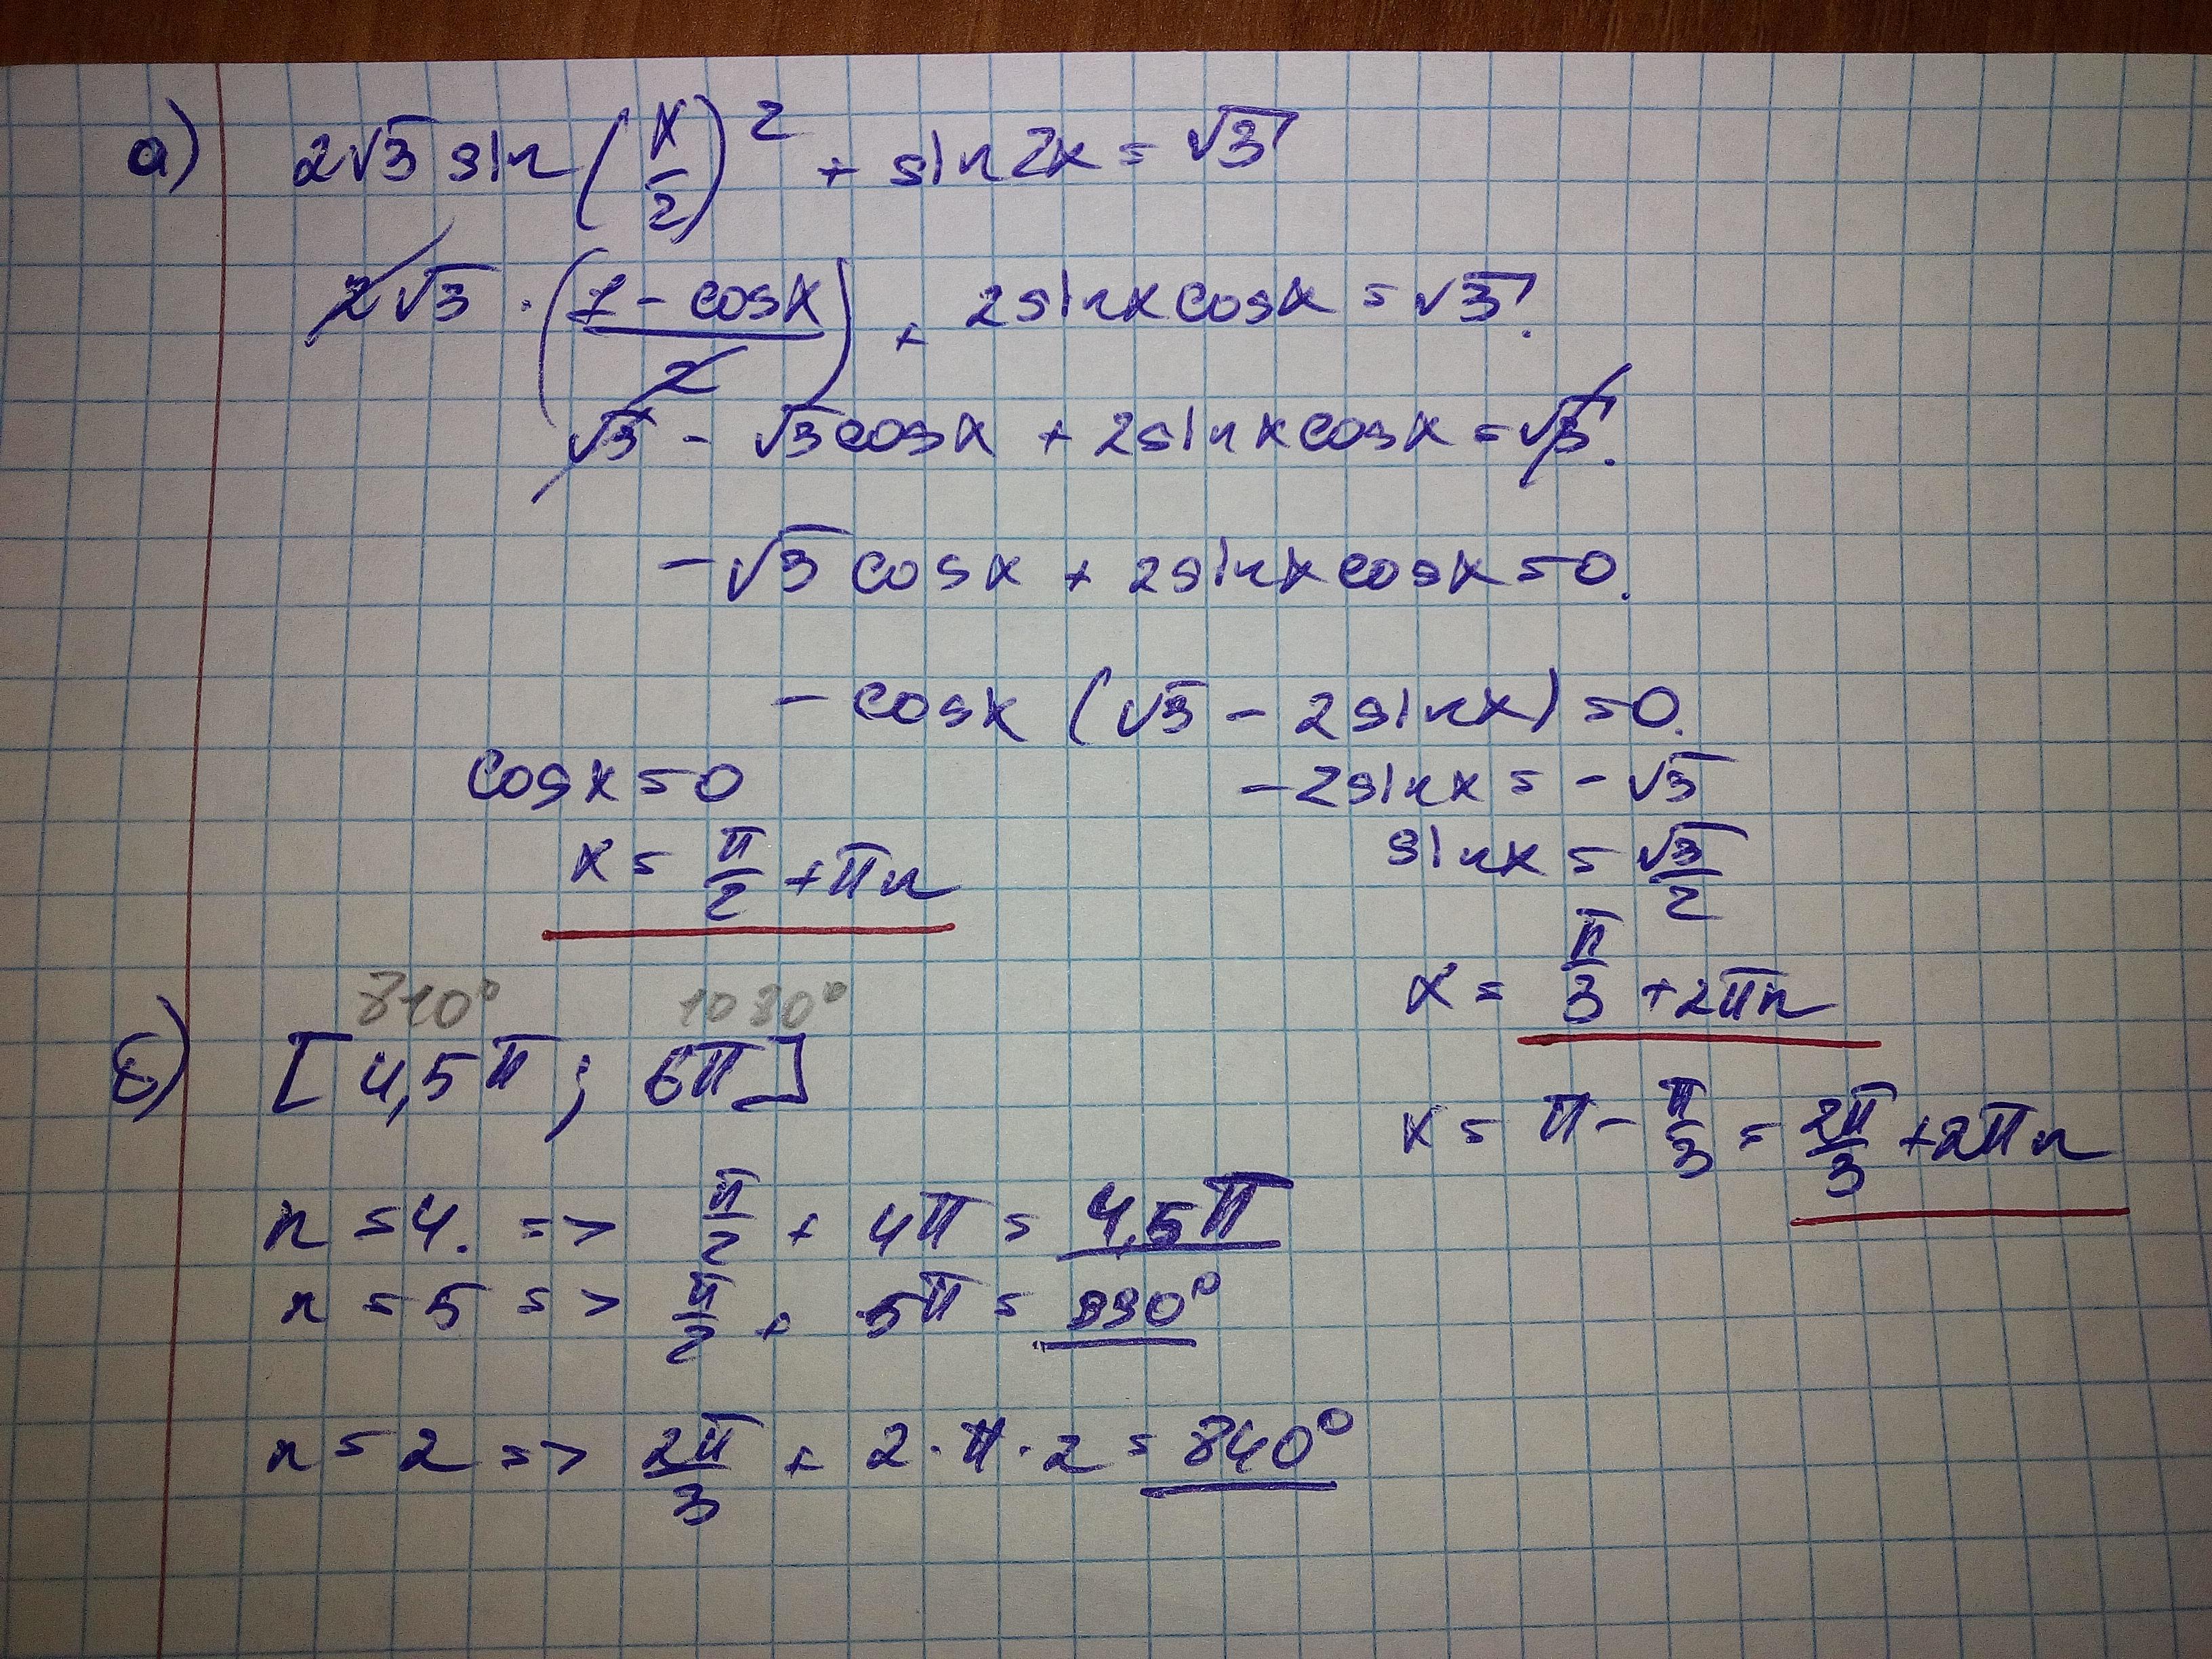 а) 2√3 sin (x/2)² + sin2x = √3
2√3 · (1 - cosx / 2) + 2sinxcosx = √3.
√3 - √3cosx + 2sinxcosx = √3.
-√3 cosx + 2sinxcosx = 0.
-cosx (√3 - 2sinx) = 0.
cosx = 0
x = π/2 + πn
-2sinx = -√3
sinx = √3/2
x = π/3 + 2πn
x = π - π/3 = 2π/3 + 2πn
810° 1080°
б) [4,5π ; 6π]
n = 4. => π/2 + 4π = 4,5π
n = 5 => π/2 + 5π = 990°
n = 2 => 2π/3 + 2·π·2 = 840°